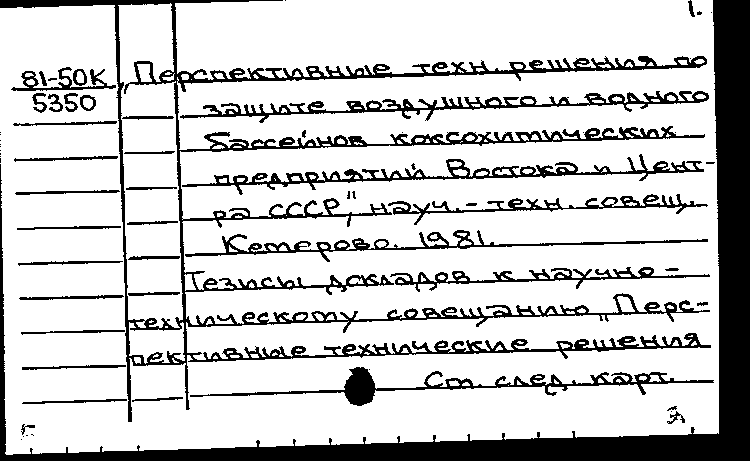 1.
81-50К
5350
„Перспективные техн. решения по
защите воздушного и водного
бассейнов коксохимических
предприятий Востока и Цент-
ра СССР", науч.-техн. совещ.
Кемерово. 1981.
Тезисы докладов к научно-
техническому совещанию „Перс-
пективные технические решения
См. след. карт.